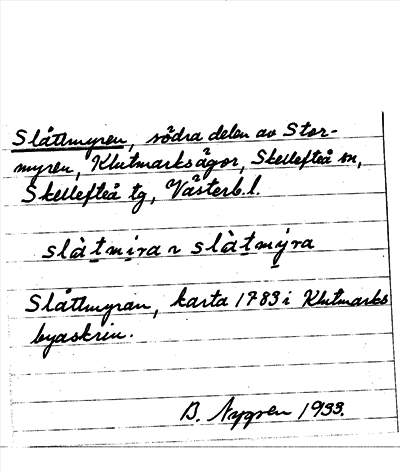 Slåttmyren, södra delen av Stor-
myren, Klutmarksägor, Skellefteå sn,
Skellefteå tg, Västerb. l.
slàt̲mi̲ra ~ slàt̲mý̲ra
Slåttmyran, karta 1783 i Klutmarks
byaskrin.
B. Nygren 1933.